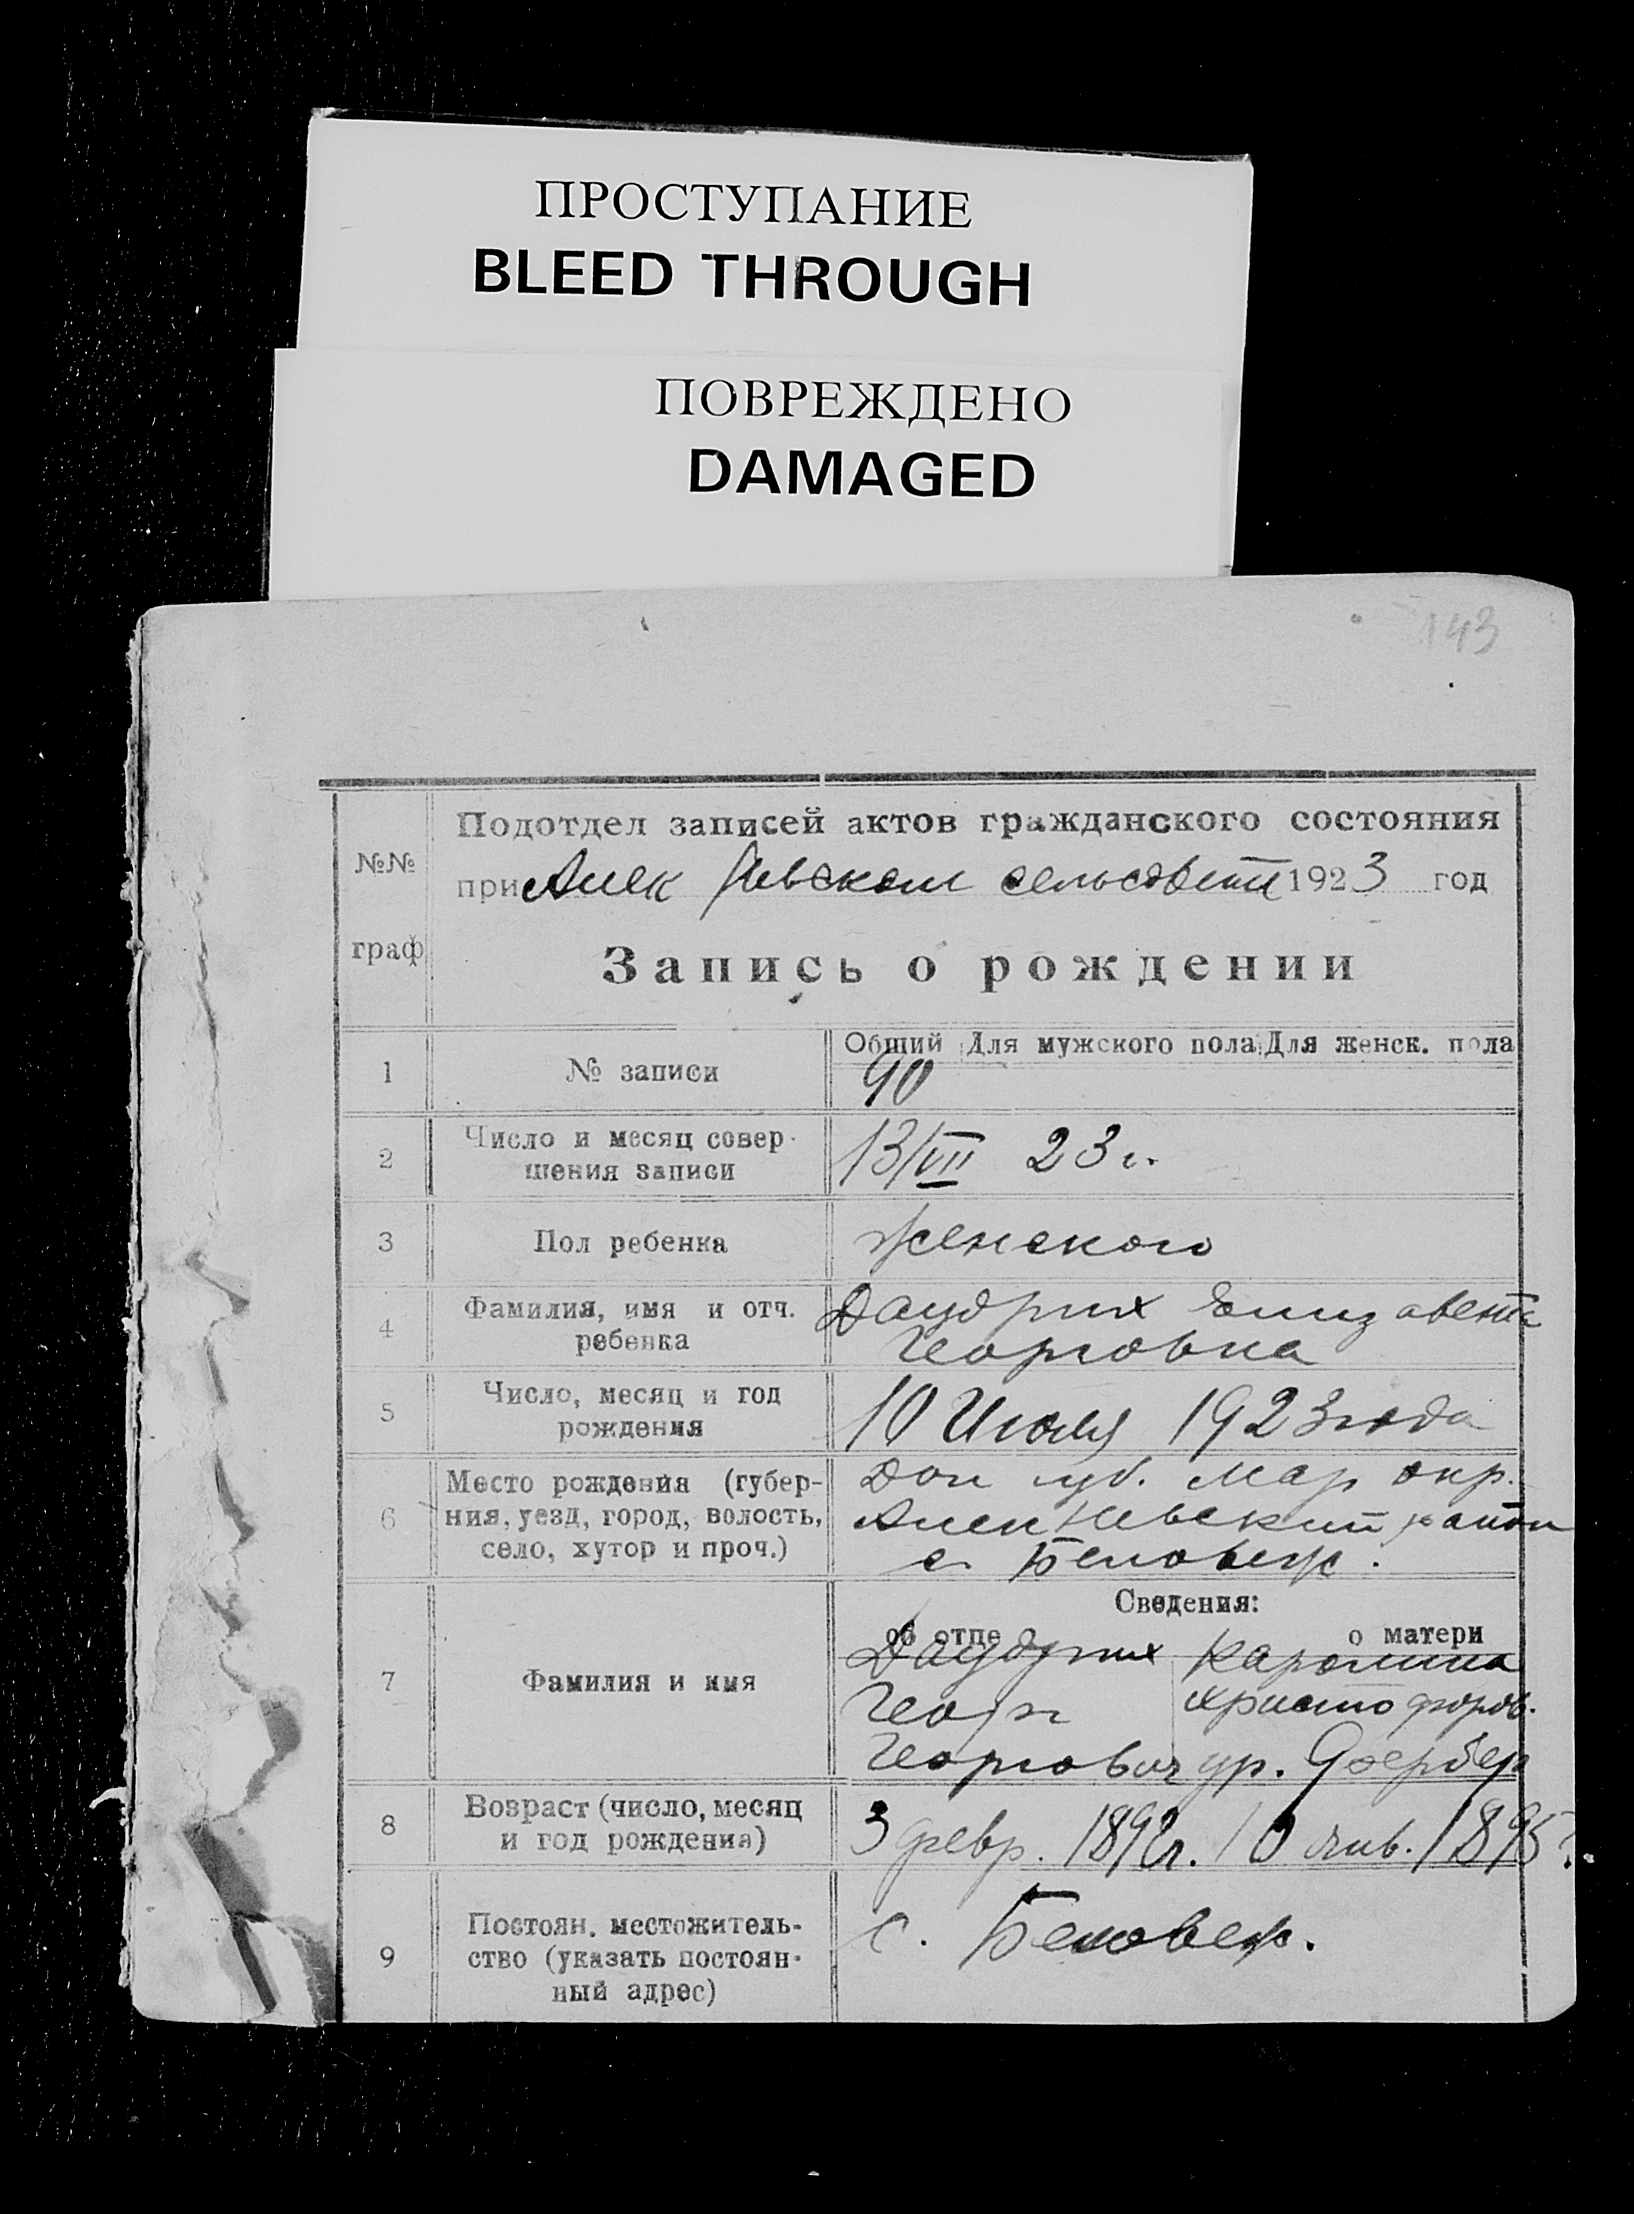 ПРОСТУПАНИЕ
BLEED THROUGH
ПОВРЕЖДЕНО
DAMAGED
143
Подотдел записей актов гражданского состояния
№№
при Алек Невском сельсовети 1923 год
граф
Запись о рождении
Общий Для мужского пола Для женск. пола
1 № записи 90
2 Число и месяц совер-
шения записи 13/VII 23 г.
3 Пол ребенка женского
4 Фамилия, имя и отч. Даудрих Елизавета
ребенка Георговна
5 Число, месяц и год
рождения 10 Июля 1923 года
6 Место рождения (губер- Дон губ. Мар окр.
ния, уезд, город, волость, Алек Невский район
село, хутор и проч.) с. Беловеж.
Сведения:
об отце о матери
7 Фамилия и имя Даудрих Каролина
Георг Христофоров.
Георгович ур. Фербер
8 Возраст (число, месяц
и год рождения) 3 февр. 1892г. 10 янв. 1895г.
9 Постоян. местожитель- с. Беловеж.
ство (указать постоян-
ный адрес)